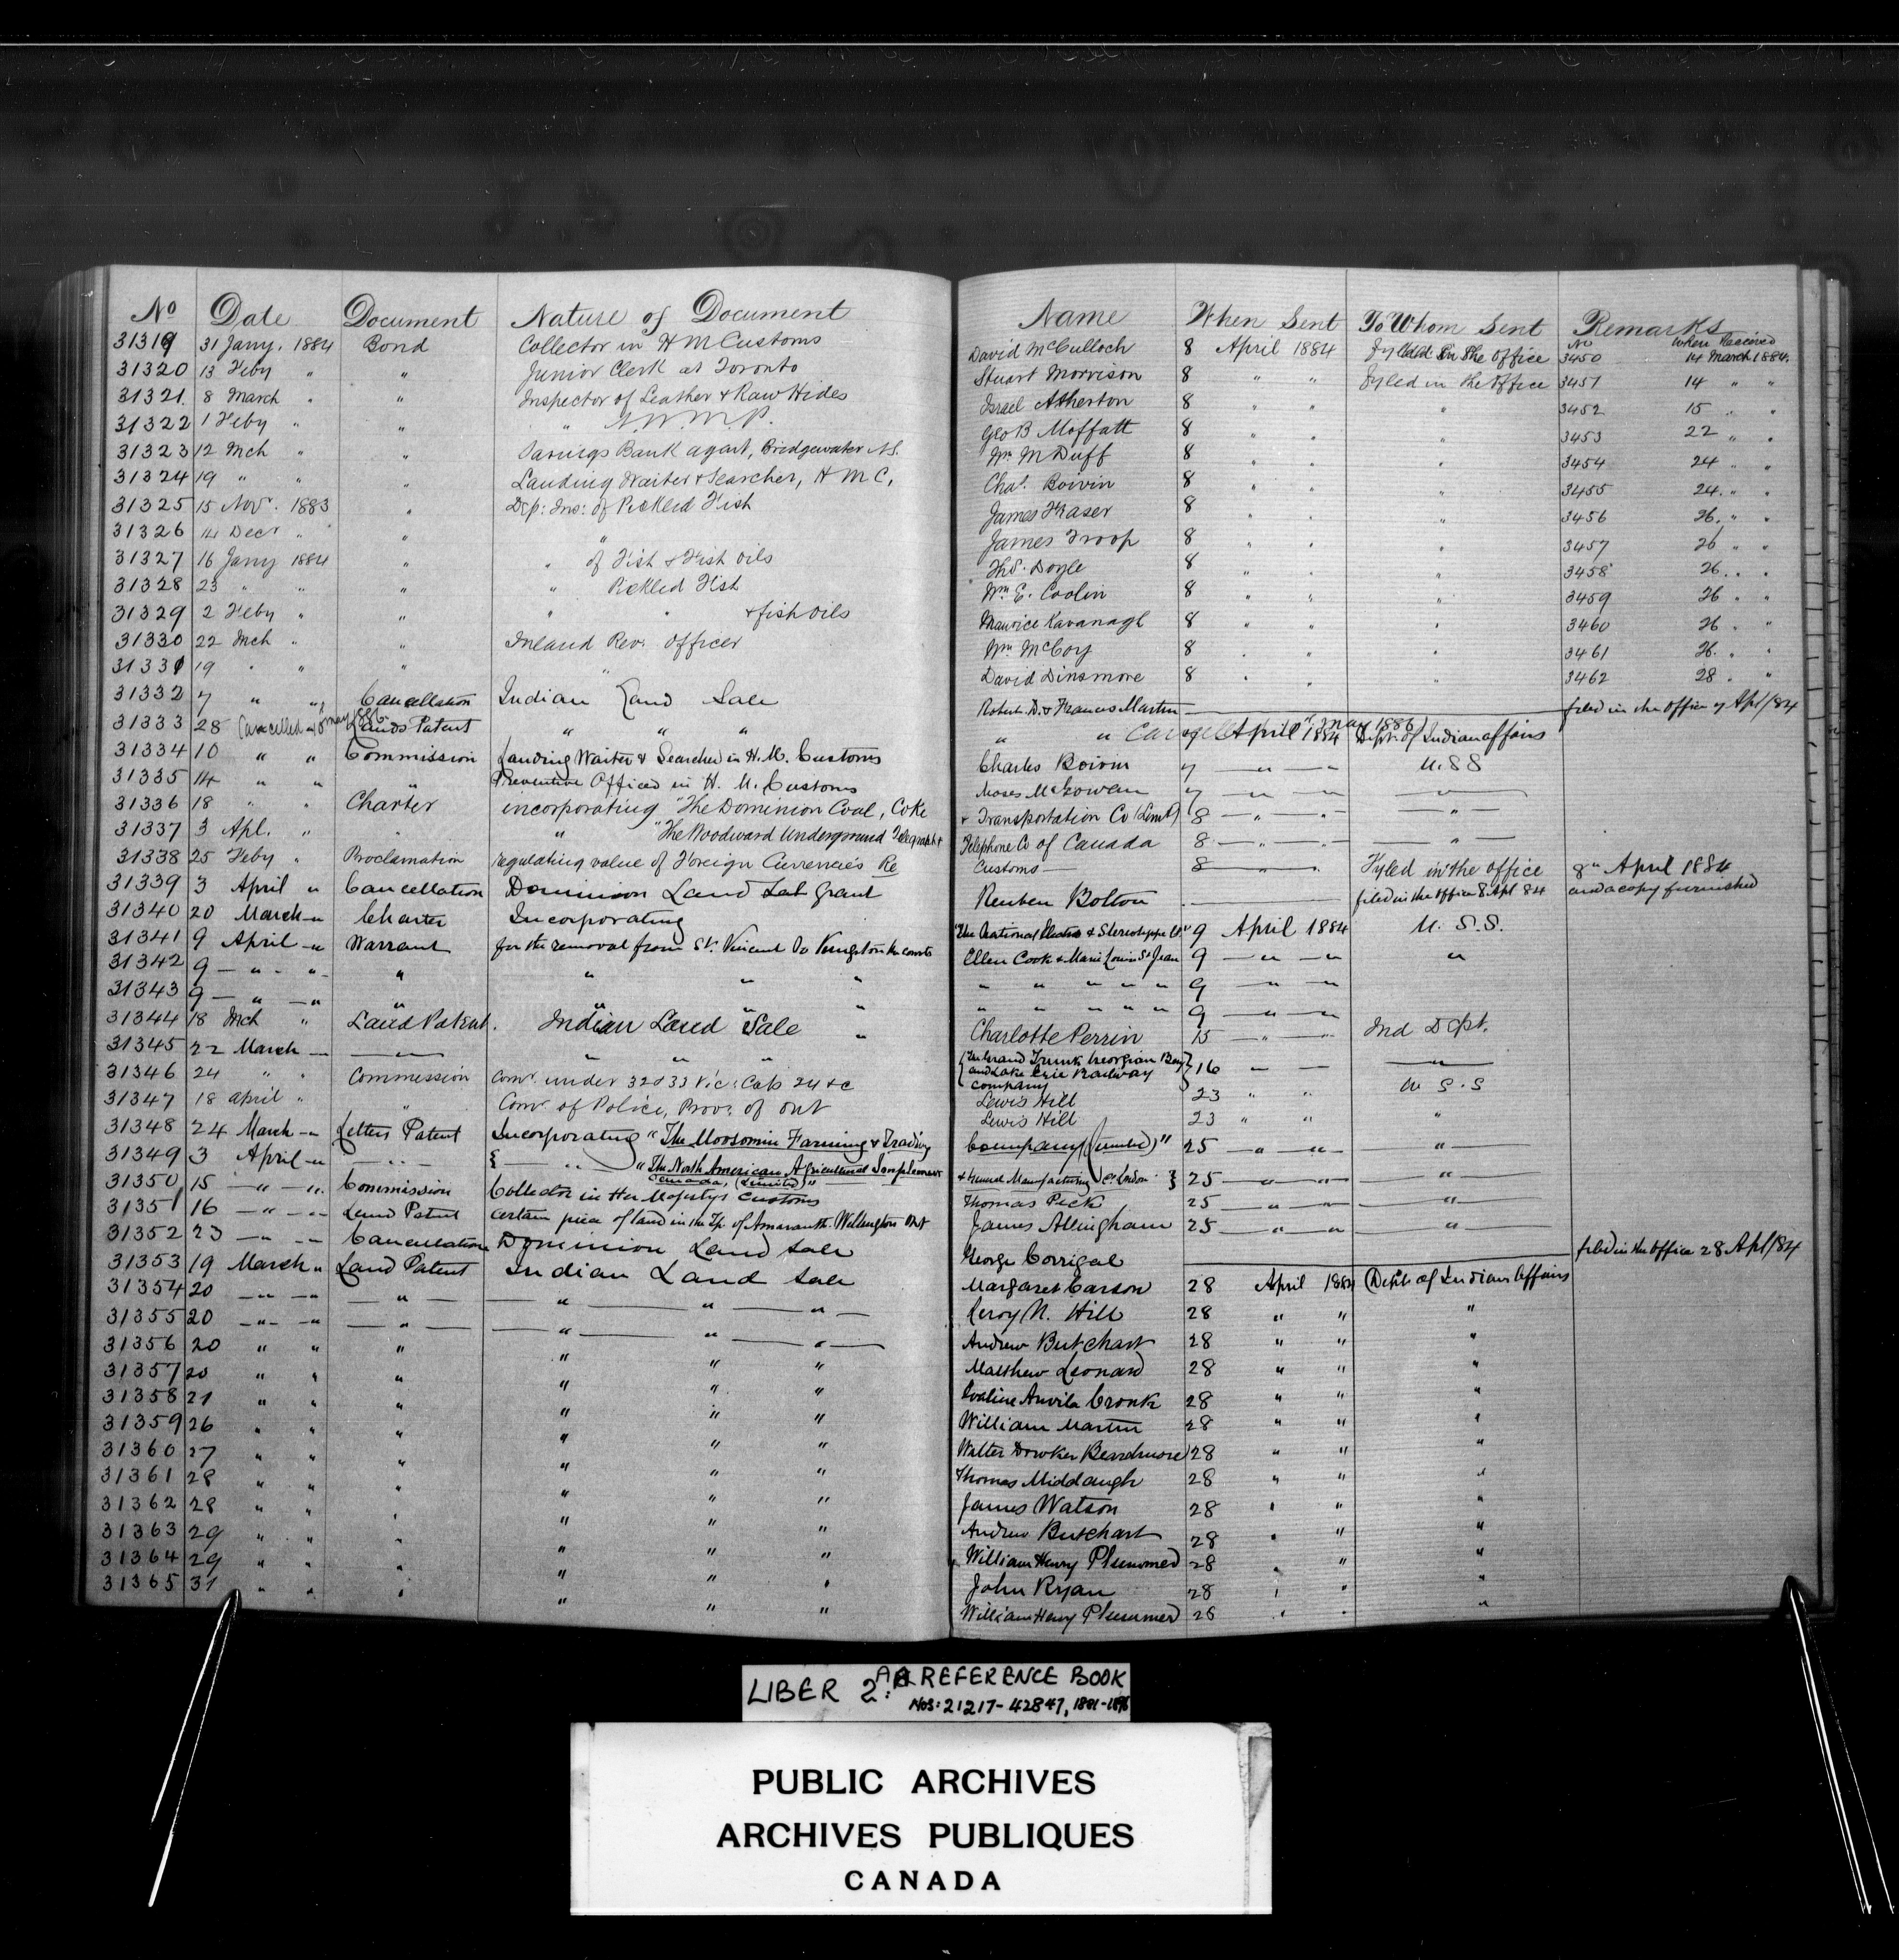 No Date Document Nature of Document Name When Sent To Whom Sent Remarks
No When Received
31319 31 Jany. 1884 Bond Collector in H M Customs David McCulloch 8 April 1884 Fyled in the office 3450 14 March 1884
31320 13 Feby " " Junior Clerk at Toronto Stuart Morrison 8 " " Fyled in the office 3451 14 " "
31321 8 March " " Inspector of Leather & Raw Hides Israel Atherton 8 " " " 3452 15 " "
31322 1 Feby " " " N. W. M. P. Geo B Moffatt 8 " " " 3453 22 " "
31323 12 Mch " " Savings Bank agent, Bridgewater N.S. Wm M Duff 8 " " " 3454 24 " "
31324 19 " " " Landing Waiter & Searcher, H M C, Chas. Boivin 8 " " " 3455 24 " "
31325 15 Novr. 1883 " Dep: Ins: of Pickled Fish James Fraser 8 " " " 3456 26 " "
31326 14 Decr " " " James Troop 8 " " " 3457 26 " "
31327 16 Jany 1884 " " of Fish & Fish Oils Thos. Doyle 8 " " " 3458 26 " "
31328 23 " " " " Pickled Fish Wm E. Coolin 8 " " " 3459 26 " "
31329 2 Feby " " " " & fish oils Maurice Kavanagh 8 " " " 3460 26 " "
31330 22 Mch " " Inland Rev: Officer Wm McCoy 8 " " " 3461 26 " "
31331 19 " " " " David Dinsmore 8 " " " 3462 28 " "
31332 7 " " Cancellation Indian Land Sale Robert D. & Frances Martin filed in the office 7 Apl/84
31333 28 Cancelled 8 May 1886 Lands Patent " " " " " 7 April 1884 Dept. of Indian affairs
31334 10 " " Commission Landing Waiter & Searcher in H. M. Customs Charles Boivin 7 " " U. S S
31335 14 " " Preventive Officer in H. M. Customs Moses McGowan 7 " " "
31336 18 " " Charter incorporating "The Dominion Coal, Coke & Transportation Co (Limtd) 8 " " "
31337 3 Apl. " " " "The Woodward Underground Telegraph & Telephone Co of Canada 8 " " "
31338 25 Feby " Proclamation regulating value of Foreign Currencies Re Customs 8 " " Fyled in the office 8th April 1884
31339 3 April " Cancellation Dominion Land Sale grant Reuben Bolton filed in the office 8 Apl 84 and a copy furnished
31340 20 March " Charter Incorporating "The National Electro & Stereotype Co." 9 April 1884 U. S. S.
31341 9 April " Warrant for the removal from St. Vincent to Kingston Ellen Cook & Marie Louis St Jean 9 " " "
31342 9 " " " " " " " " " " " 9 " "
31343 9 " " " " " " " " " " " 9 " "
31344 18 Mch " Land Patent. Indian Land Sale Charlotte Perrin 15 " " Ind Dept.
31345 22 March " " " " " { The Grand Trunk Georgian Bay and Lake Erie Railway company } 16 " " "
31346 24 " " Commission Comr. under 32 & 33 Vic: Cap 24 &c Lewis Hill 23 " " U S. S
31347 18 april " " Comr. of Police, Prov: of Ont Lewis Hill 23 " " "
31348 24 March " Letters Patent Incorporating "The Moosomin Farming & Trading Company (limited)" 25 " " "
31349 3 April " " { " "The North American Agricultural Implement & General Manufacturing Co London } 25 " " "
Canada, (Limited)"
31350 15 " " Commission Collector in Her Majestys Customs Thomas Peck 25 " " "
31351 16 " " Land Patent Certain piece of land in the Tp. of Amaranth. Wellington Ont James Allingham 25 " " "
31352 23 " " Cancellation Dominion Land Sale George Corrigal filed in the office 28 Apl/84
31353 19 March " Land Patent Indian Land Sale Margaret Carson 28 April 1884 Dept. of Indian Affairs
31354 20 " " " " " " Leroy N. Hill 28 " " "
31355 20 " " " " " " Andrew Butchart 28 " " "
31356 20 " " " " " " Matthew Leonard 28 " " "
31357 20 " " " " " " Cronk 28 " " "
31358 21 " " " " " " William Martin 28 " " "
31359 26 " " " " " " Walter Dowker Beardmore 28 " " "
31360 27 " " " " " " Thomas Middaugh 28 " " "
31361 28 " " " " " " James Watson 28 " " "
31362 28 " " " " " " Andrew Butchart 28 " " "
31363 29 " " " " " " William Henry Plummer 28 " " "
31364 29 " " " " " " John Ryan 28 " " "
31365 31 " " " " " " William Henry Plummer 28 " " "
LIBER 2: REFERENCE BOOK
NOS: 21217-42847, 1881-1896
PUBLIC ARCHIVES
ARCHIVES PUBLIQUES
CANADA